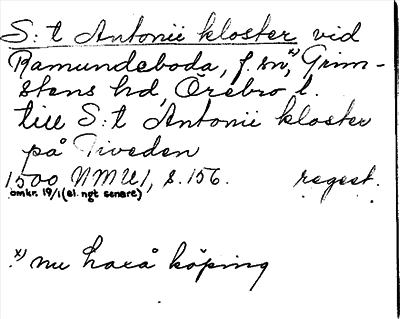 S:t Antonii kloster vid
Ramundeboda, f. sn,ˣ⁾ Grim-
stens hd, Örebro l.
till S:t Antonii kloster
på Tiveden
1500 NMU1, s. 156. regest.
omkr. 19/1 (el. ngt senare)
x) nu Laxå köping